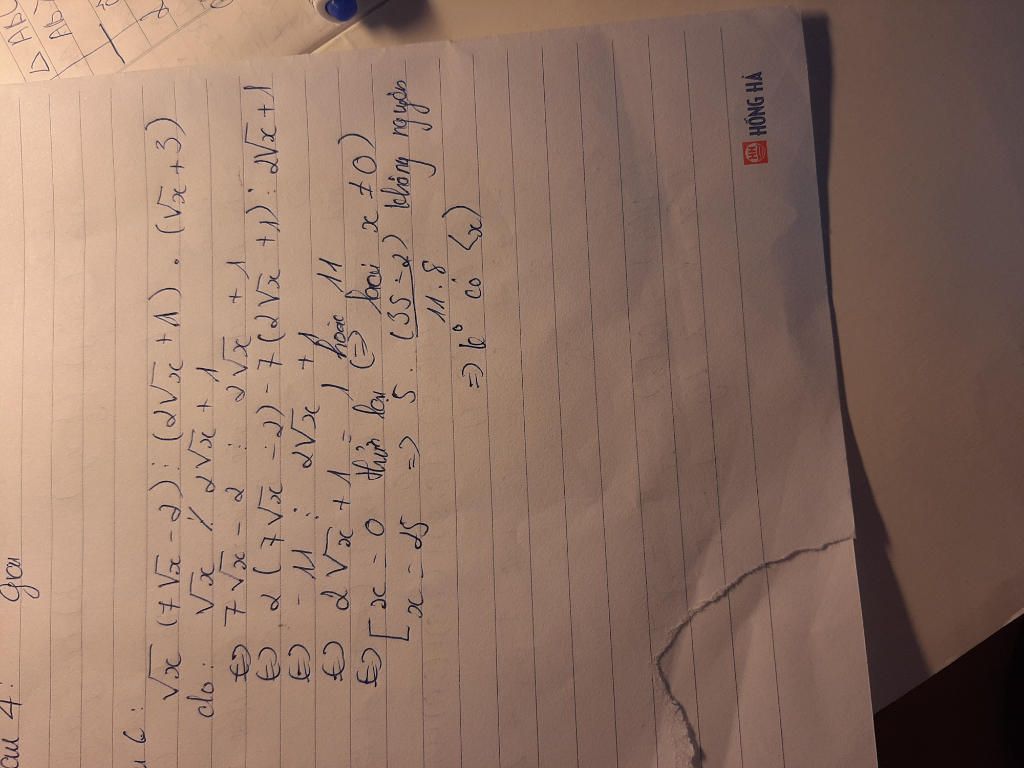 Câu 4:
√x (7√x - 2) ⋮ (2√x + 1) . (√x + 3)
do: √x ⋮̸ 2√x + 1
⇔ 7√x - 2 ⋮ 2√x + 1
⇔ 2(7√x - 2) - 7(2√x + 1) ⋮ 2√x + 1
⇔ - 11 ⋮ 2√x + 1
⇔ 2√x + 1 = 1 hoặc 11
⇔ [ x = 0 thỏa (⇒ loại x ≠ 0)
x = 25 ⇒ 5 . (35 - 2) không nguyên
11 . 8
⇒ k° có (x)
HỒNG HÀ